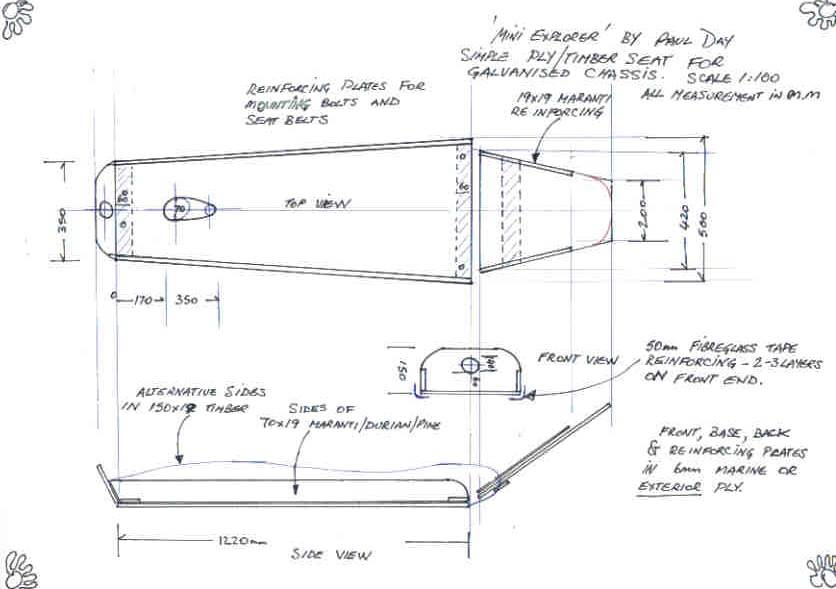 'MINI EXPLORER' BY PAUL DAY
SIMPLE PLY/TIMBER SEAT FOR
GALVANISED CHASSIS. SCALE 1:100
ALL MEASUREMENT IN M.M
REINFORCING PLATES FOR
MOUNTING BOLTS AND
SEAT BELTS
19X19 MARANTI
REINFORCING
350
80
70
TOP VIEW
60
200
420
500
0
170
350
150
FRONT VIEW
50mm FIBREGLASS TAPE
REINFORCING - 2-3 LAYERS
ON FRONT END.
ALTERNATIVE SIDES
IN 150X19 TIMBER
SIDES OF
70X19 MARANTI/DURIAN/PINE
FRONT, BASE, BACK
& REINFORCING PLATES
IN 6mm MARINE OR
EXTERIOR PLY.
1220mm
SIDE VIEW